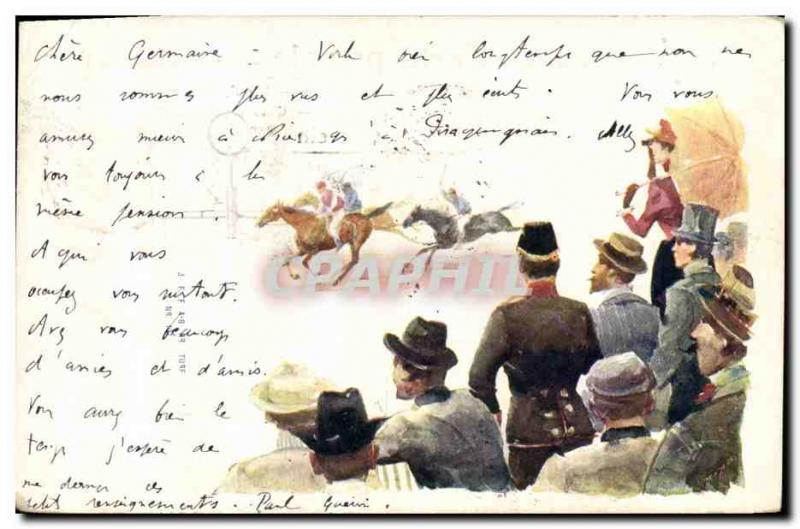 Chère Germaine - Voilà bien longtemps que non ne
nous sommes plus vus et plus écrits. Vous vous
amusez mieux à à . Allez
vous toujours à la
même pension.
A qui vous
occupez vous surtout.
Avez vous beaucoup
d'amies et d'amis.
Vous aurez bien le
temps j'espère de
me donner ces
petits renseignements. Paul
CPAPHIL
TURF